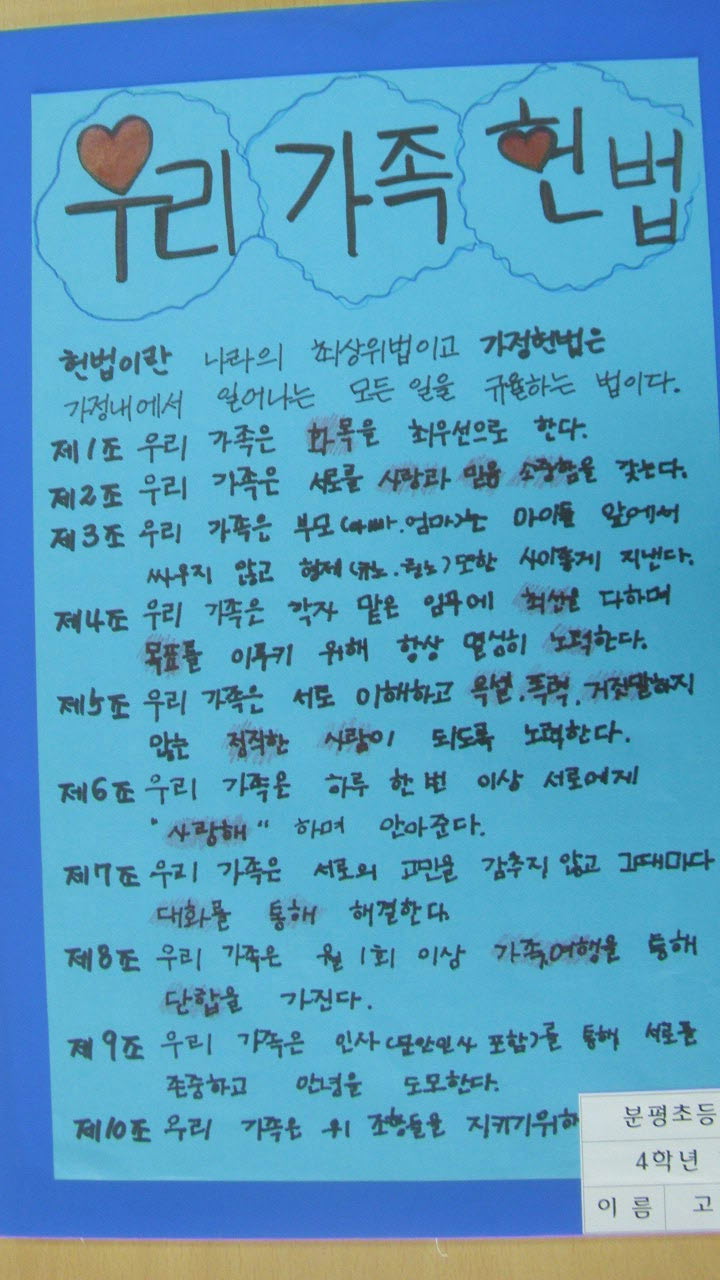 우리 가족 헌법
헌법이란 나라의 최상위법이고 가정헌법은
가정내에서 일어나는 모든 일을 규율하는 법이다.
제1조 우리 가족은 화목을 최우선으로 한다.
제2조 우리 가족은 서로를 사랑과 믿음 소중함을 갖는다.
제3조 우리 가족은 부모(아빠.엄마)는 아이들 앞에서
싸우지 않고 형제() 또한 사이좋게 지낸다.
제4조 우리 가족은 각자 맡은 임무에 최선을 다하며
목표를 이루기 위해 항상 열심히 노력한다.
제5조 우리 가족은 서로 이해하고 욕설.폭력.거짓말하지
않는 정직한 사람이 되도록 노력한다.
제6조 우리 가족은 하루 한번 이상 서로에게
"사랑해" 하며 안아준다.
제7조 우리 가족은 서로의 고민을 감추지 않고 그때마다
대화를 통해 해결한다.
제8조 우리 가족은 월 1회 이상 가족여행을 통해
단합을 가진다.
제9조 우리 가족은 인사(문안인사 포함)를 통해 서로를
존중하고 안녕을 도모한다.
제10조 우리 가족은 위 조항들을 지키기위하
분평초등
4학년
이름 고